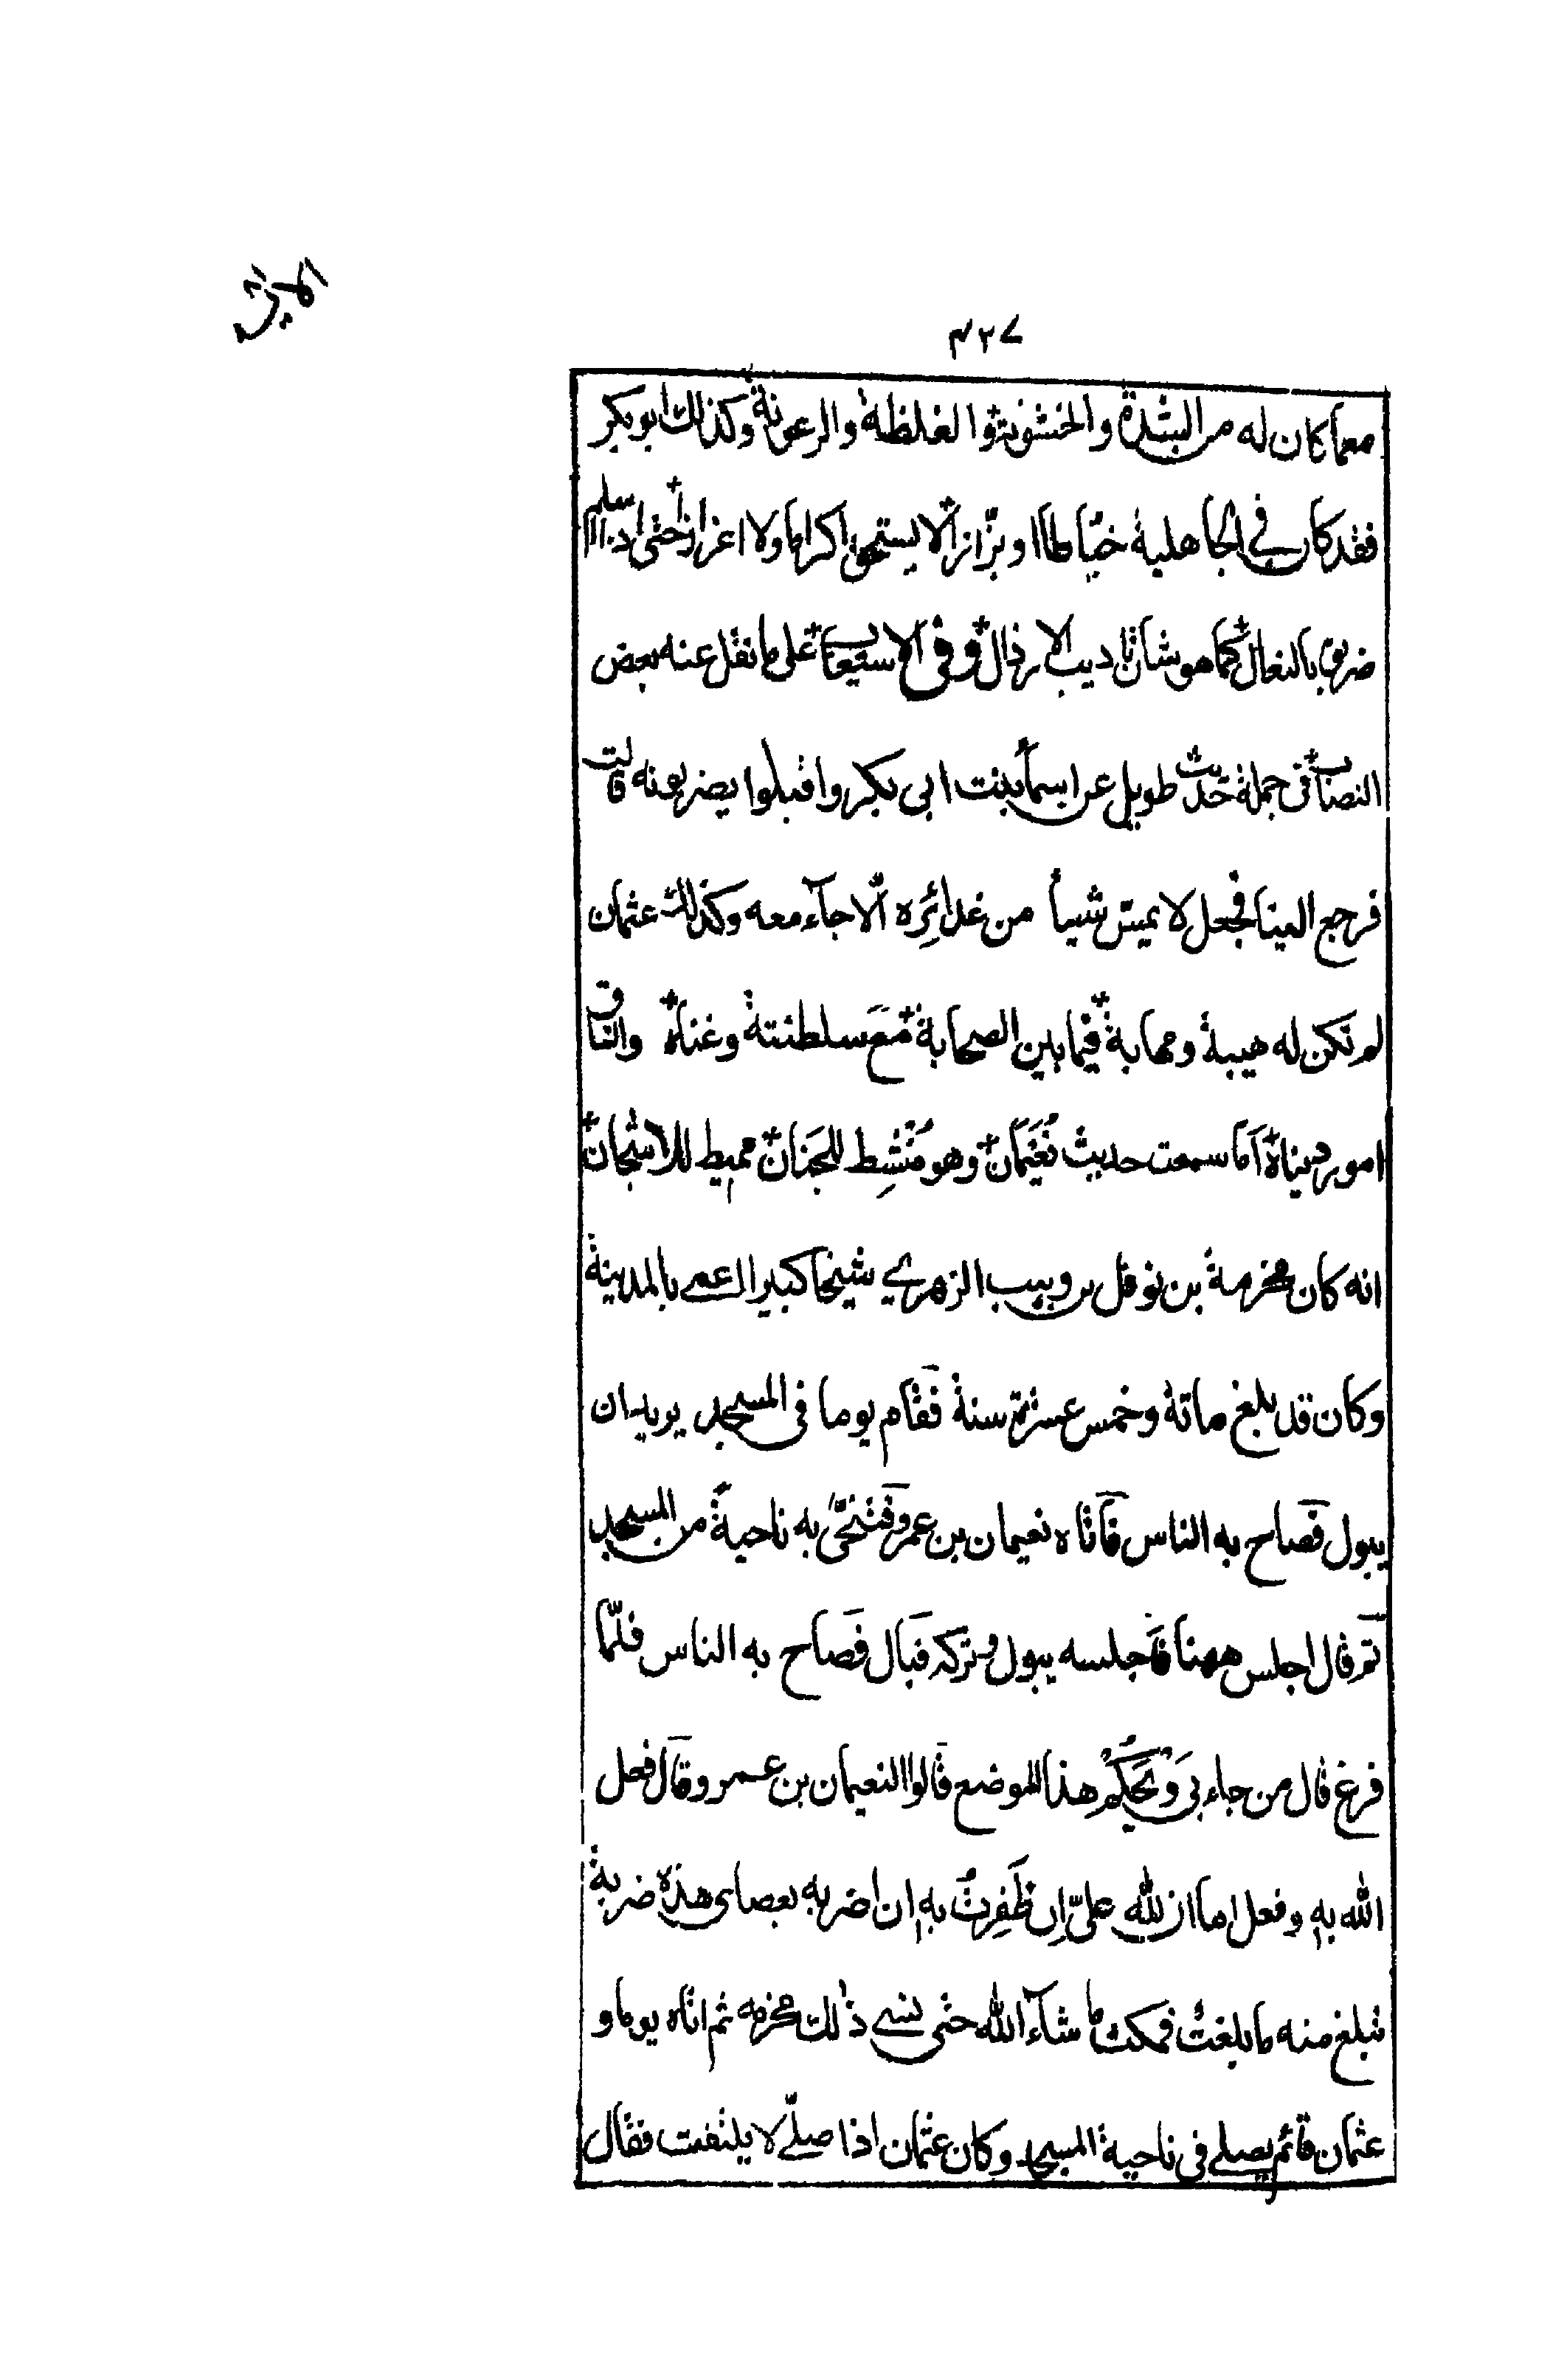 ۴۲۷
معما كان له من الشدة والخشونة والغلظة والرعونة وكذلك ابو بكر
فقد كان في الجاهلية خياطا او بزازا لا يستحق اكراما ولا اعزازا حتى اذ اسلم
ضربوه بالنعال كما هو شان تاديب الارذال وفي الاستيعاب على ما نقل عنه بعض
النصاب في جملة حديث طويل عن اسمآ بنت ابي بكر واقبلوا يضربونه قالت
فرجع الينا فجعل لا يمسّ شيأ من غدائِرِه الّا جآء معه وكذلك عثمان
لم تكن له هيبة ومهابة فيما بين الصحابة مع سلطنته وغناه والنا في
امور دنياه اَما سمعت حديث نُعَيْمان وهو مُنْشِط للجَذلان مميط للاشجان
انه كان مخرمة بن نوفل بن وهيب الزهري شيخا كبيرا اعمى بالمدينة
وكان قد بلغ مائة وخمس عشرة سنة فقام يوما في المسجد يريد ان
يبول فصاح به الناس فاتاه نعيمان بن عمرو فتنحّى به ناحيةً من المسجد
ثم قال اجلس ههنا فاجلسه يبول وتركه فبال فصاح به الناس فلمّا
فرغ قال من جاء بي وَيْحَكُمْ هذا الموضع قالوا النعيمان بن عمرو قال فعل
الله بهِ وفعل اما ان لله عليّ اِن ظَفِرتُ بهِ ان اضربه بعصاي هذه ضربة
تبلغ منه ما بلغت فمكث ما شآء الله حتى نسي ذلك مخرمه ثم اتاه يوما و
عثمان قائم يصلي في ناحية المسجد وكان عثمان اذا صلّى لا يلتفت فقال